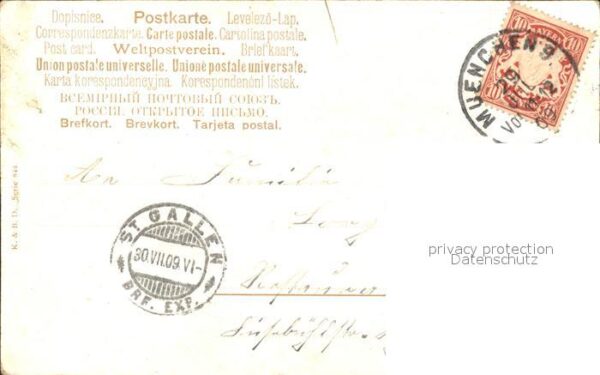 Dopisnice. Postkarte. Levelező-Lap.
Correspondenzkarte. Carte postale. Cartolina postale.
Post card. Weltpostverein. Briefkaart.
Union postale universelle. Unione postale universale.
Karta korespondencyjna. Korespondenčni listek.
ВСЕМІРНЫЙ ПОЧТОВЫЙ СОЮЗЪ.
РОССІЯ. ОТКРЫТОЕ ПИСЬМО.
Brefkort. Brevkort. Tarjeta postal.
10 BAYERN 10
MUENCHEN 9.
K. & B. D. Serie
An Familie
ST GALLEN
30.VII.09.VI-
BRF. EXP.
privacy protection
Datenschutz